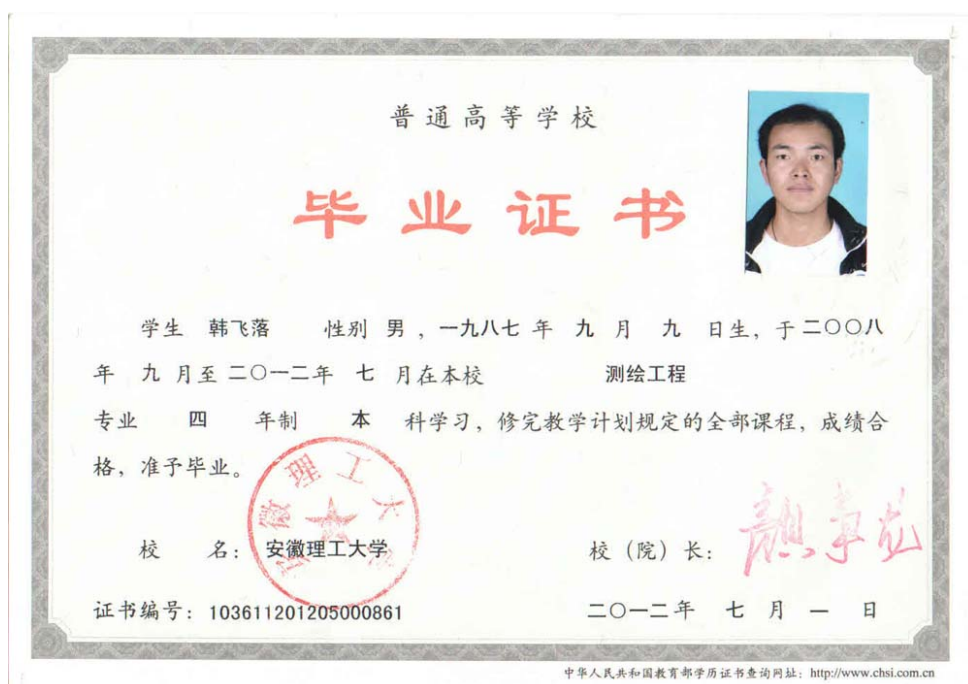 普通高等学校
毕业证书
学生 韩飞落 性别 男 ，一九八七 年 九 月 九 日生，于二〇〇八
年 九 月至 二〇一二年 七 月在本校 测绘工程
专业 四 年制 本 科学习，修完教学计划规定的全部课程，成绩合
格，准予毕业。
安徽理工大学
校 名： 安徽理工大学 校（院）长：
证书编号：103611201205000861 二〇一二年 七 月 一 日
中华人民共和国教育部学历证书查询网址：http://www.chsi.com.cn